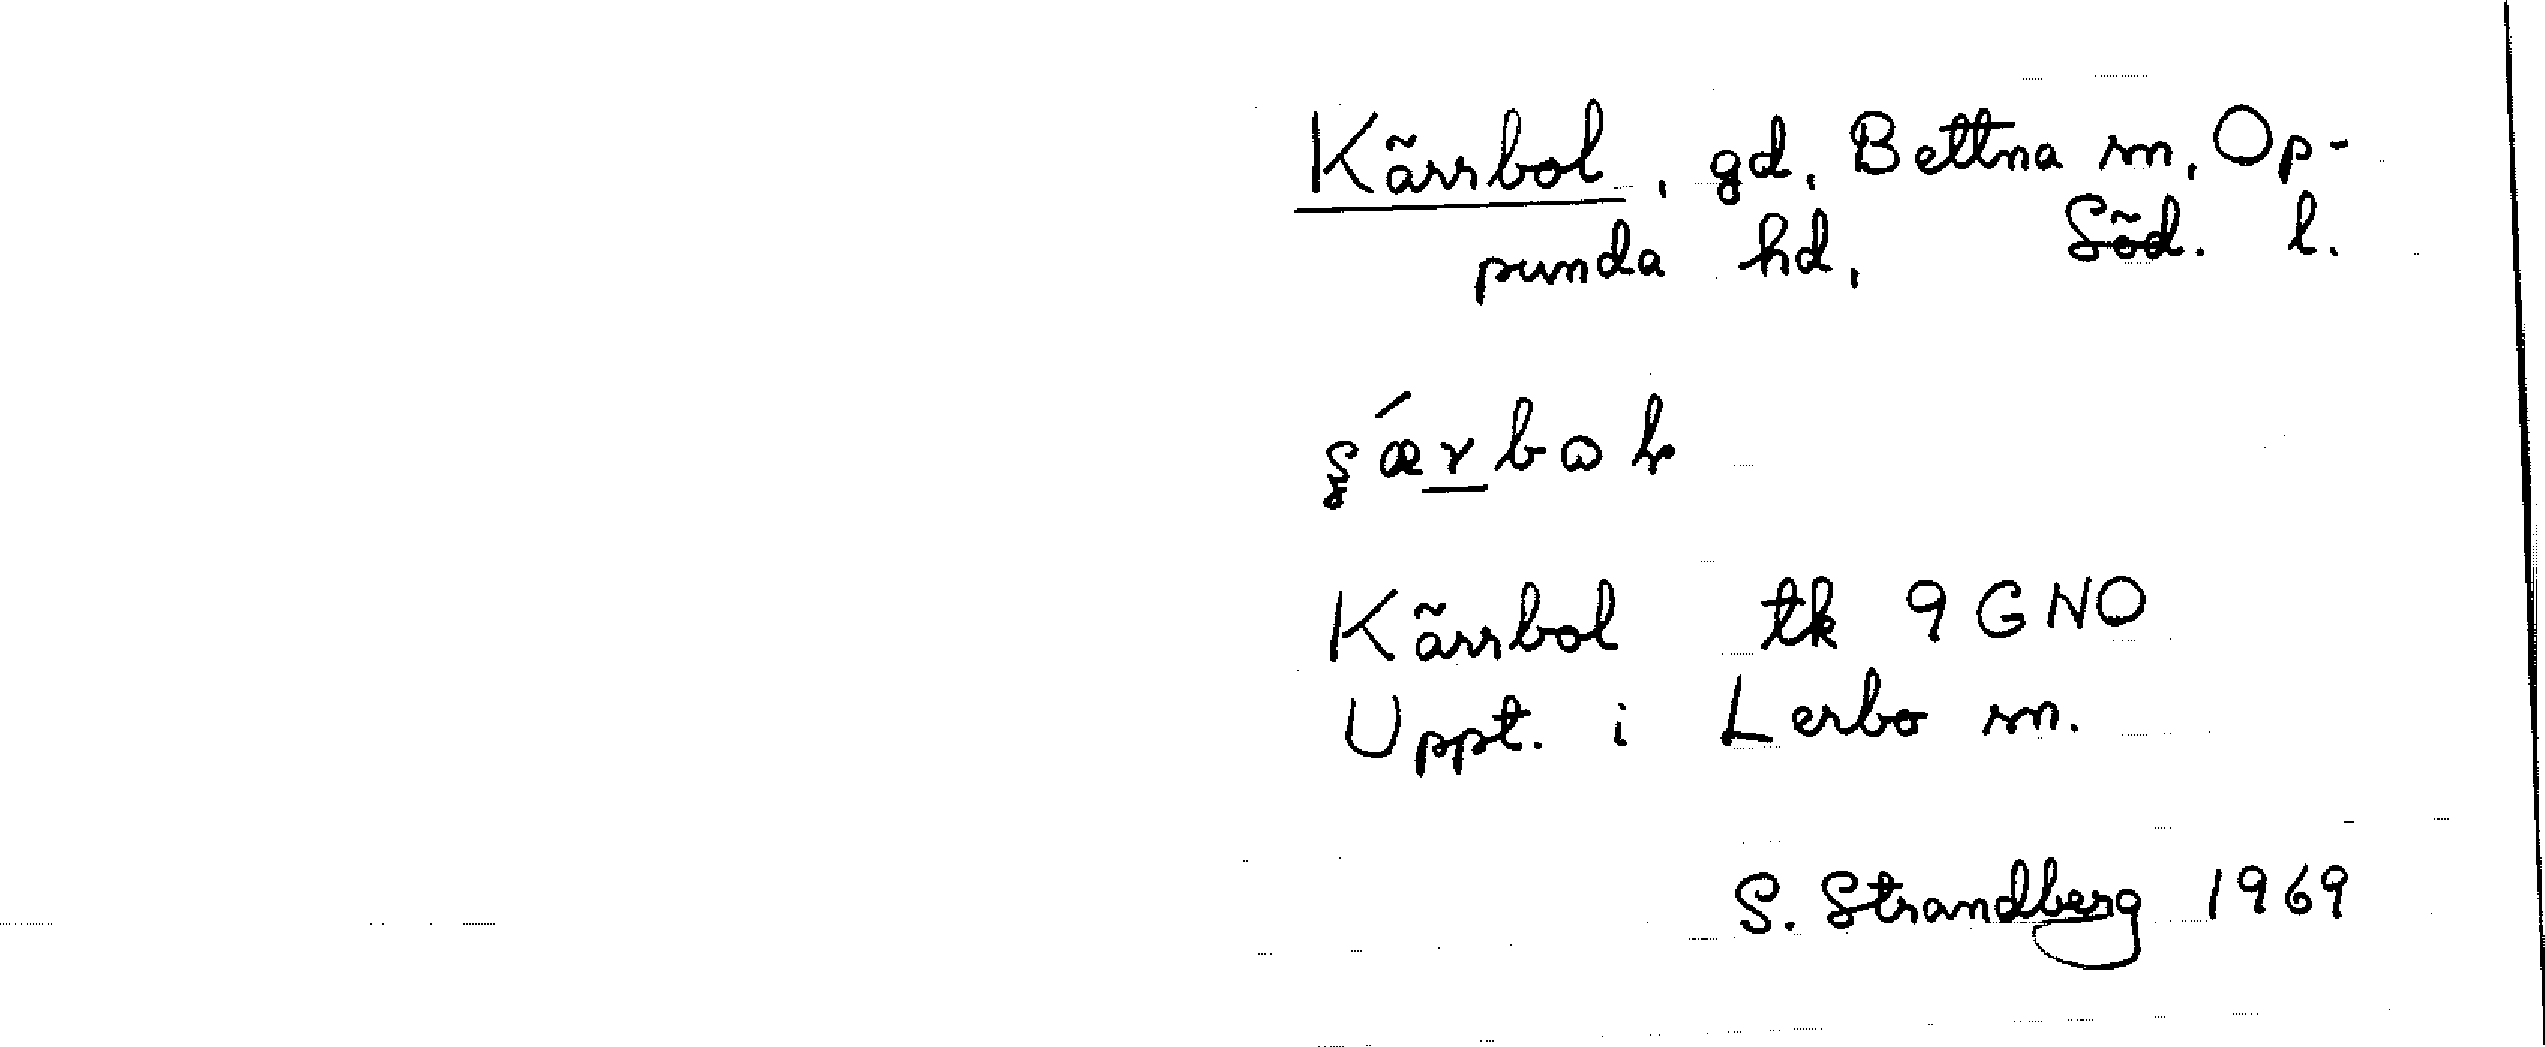 Kärrbol, gd, Bettna sn, Op-
punda hd, Söd. l.
Kärrbol tk 9GNO
Uppt. i Lerbo sn.
S. Strandberg 1969